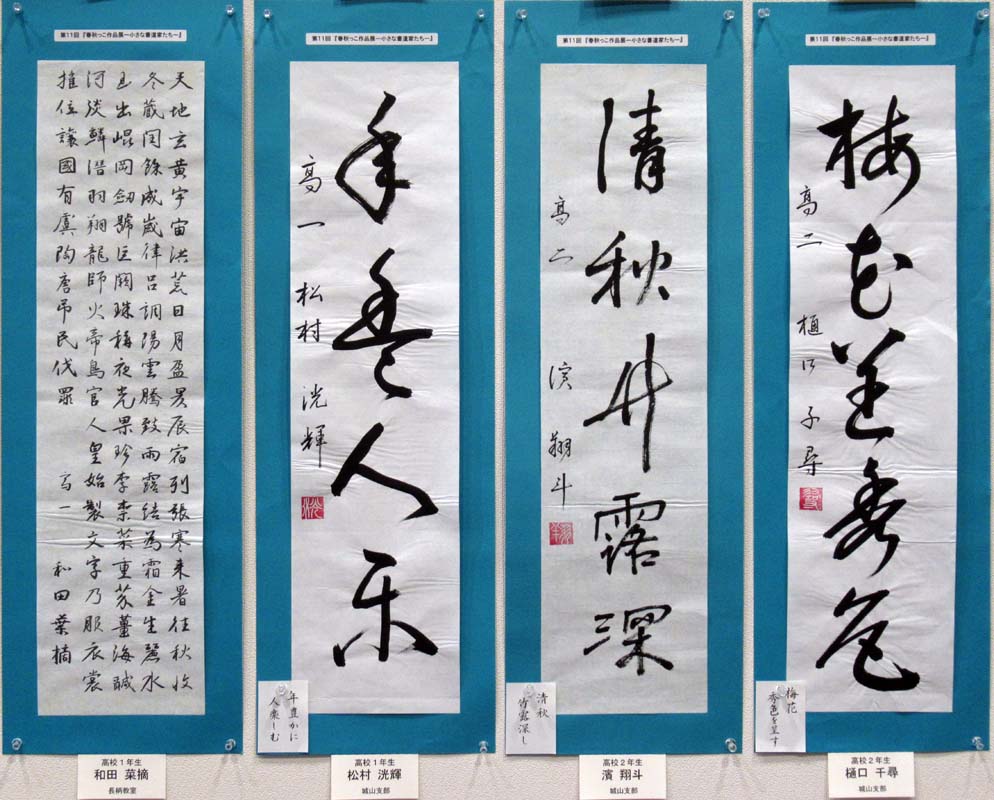 第11回 『春秋っこ作品展―小さな書道家たち―』
天地玄黄宇宙洪荒日月盈昃辰宿列張寒来暑往秋收
冬蔵閏餘成歳律呂調陽雲騰致雨露結為霜金生麗水
玉出崐岡劒號巨闕珠稱夜光果珍李柰菜重芥薑海鹹
河淡鱗潜羽翔龍師火帝鳥官人皇始製文字乃服衣裳
推位讓國有虞陶唐弔民伐罪 高一 和田菜摘
高校1年生
和田 菜摘
長柄教室
第11回 『春秋っこ作品展―小さな書道家たち―』
年豊人楽
高一 松村 洸輝
年豊かに
人楽しむ
高校1年生
松村 洸輝
城山支部
第11回 『春秋っこ作品展―小さな書道家たち―』
清秋竹露深
高二 濱 翔斗
清秋
竹露深し
高校2年生
濱 翔斗
城山支部
第11回 『春秋っこ作品展―小さな書道家たち―』
梅花呈秀色
高二 樋口 千尋
梅花
秀色を呈す
高校2年生
樋口 千尋
城山支部